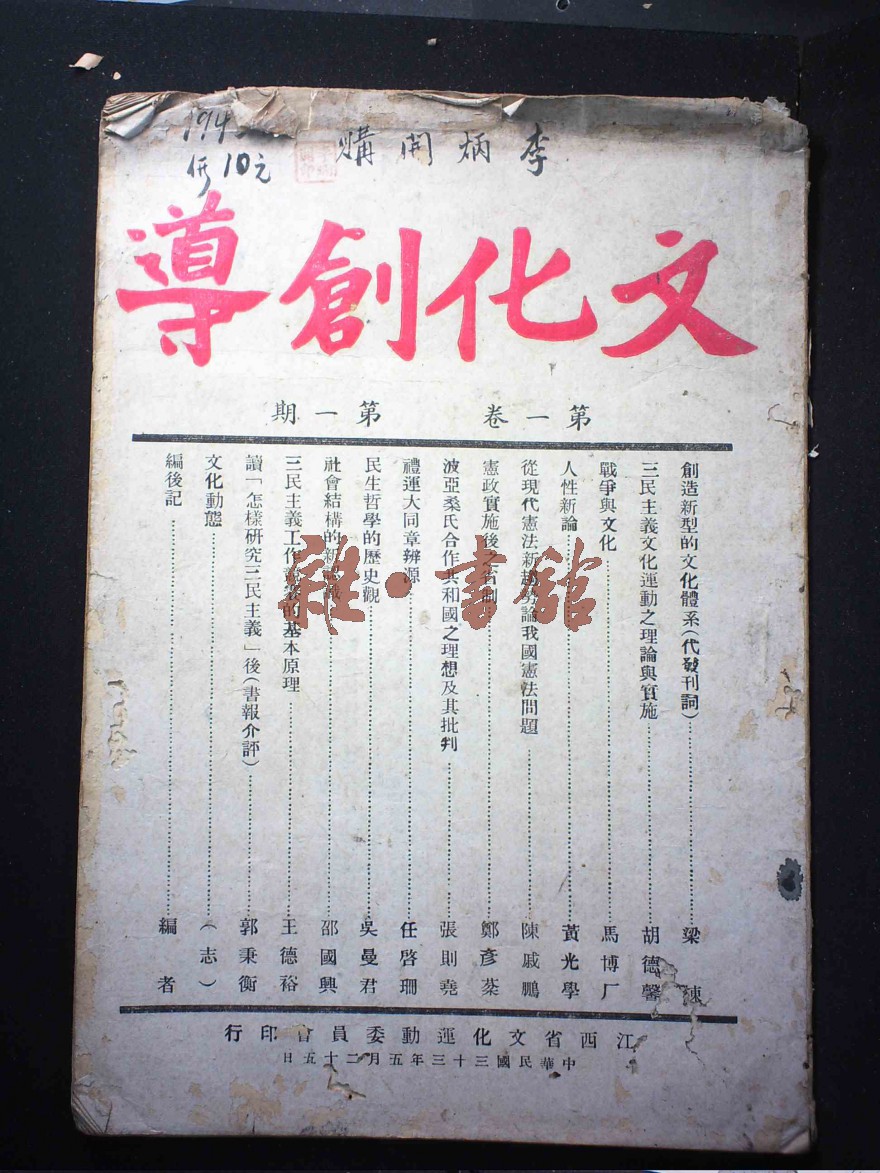 李炳開購
價10元
文化創導
第一卷 第一期
創造新型的文化體系(代發刊詞)……梁
三民主義文化運動之理論與實施……胡德馨
戰爭與文化……馬博厂
人性新論……黃光學
從現代憲法新趨勢論我國憲法問題……陳戚鵬
憲政實施後之省制……鄭彥棻
波亞桑氏合作共和國之理想及其批判……張則堯
禮運大同章辨源……任啓珊
民生哲學的歷史觀……吳曼君
社會結構的新認識……邵國興
三民主義工作競賽的基本原理……王德裕
讀「怎樣研究三民主義」後(書報介評)……郭秉衡
文化動態……(志)
編後記……編者
江西省文化運動委員會印行
中華民國三十三年五月二十五日
雜·書館